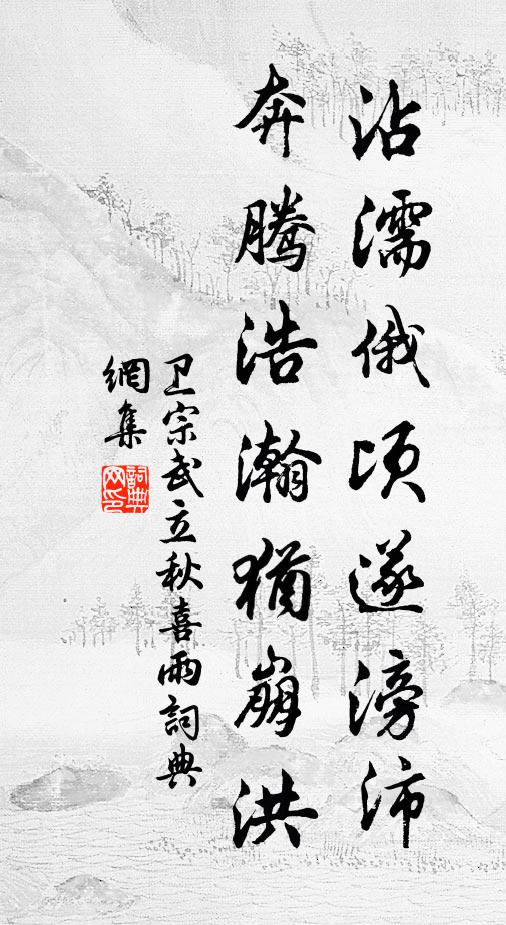 沾濡俄顷遂滂沛
奔腾浩瀚猶崩洪
卫宗武立秋喜雨詞典
網集
詞典
网印